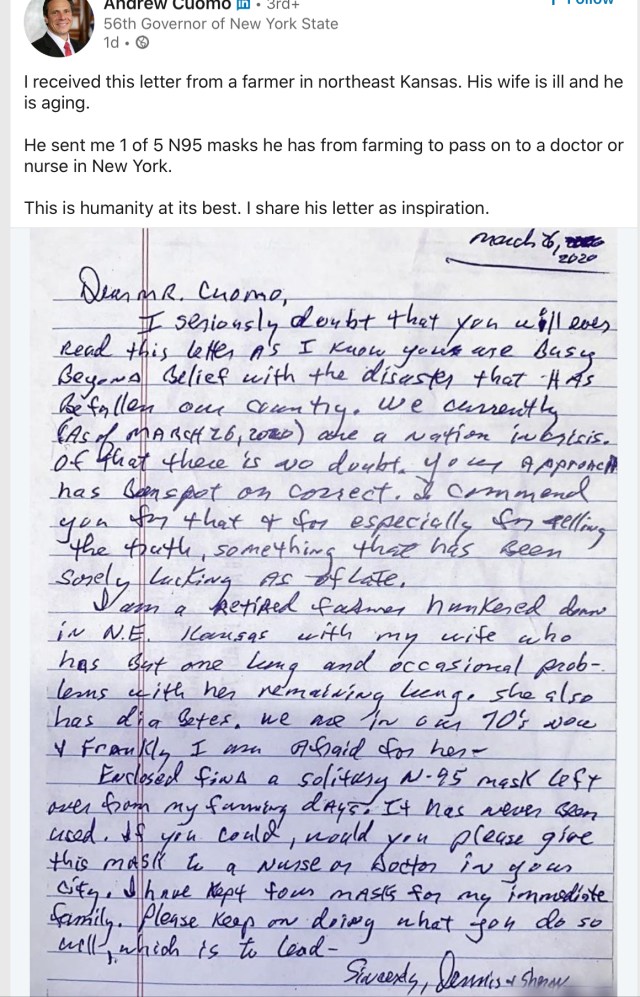 Andrew Cuomo in • 3rd+
+ Follow
56th Governor of New York State
1d •
I received this letter from a farmer in northeast Kansas. His wife is ill and he
is aging.
He sent me 1 of 5 N95 masks he has from farming to pass on to a doctor or
nurse in New York.
This is humanity at its best. I share his letter as inspiration.
March 26,
2020
Dear MR. Cuomo,
I seriously doubt that you will ever
Read this letter As I know you are Busy
Beyond Belief with the disaster that HAS
Befallen our country. We currently
(As of MARCH 26, 2020) are a nation in crisis.
Of that there is no doubt. Your Approach
has been spot on correct. I commend
you for that & for especially for telling
the truth, something that has been
sorely lacking As of late.
I am a retired farmer hunkered down
in N.E. Kansas with my wife who
has But one lung and occasional prob-
lems with her remaining lung. She also
has diabetes. We are in our 70's now
& Frankly I am Afraid for her-
Enclosed find a solitary N-95 mask left
over from my farming dAys. It has never been
used. If you could, would you please give
this mask to a nurse or Doctor in your
City. I have kept four MASKS for my immediate
family. Please keep on doing what you do so
well, which is to lead-
Sincerely, Dennis & Sharon